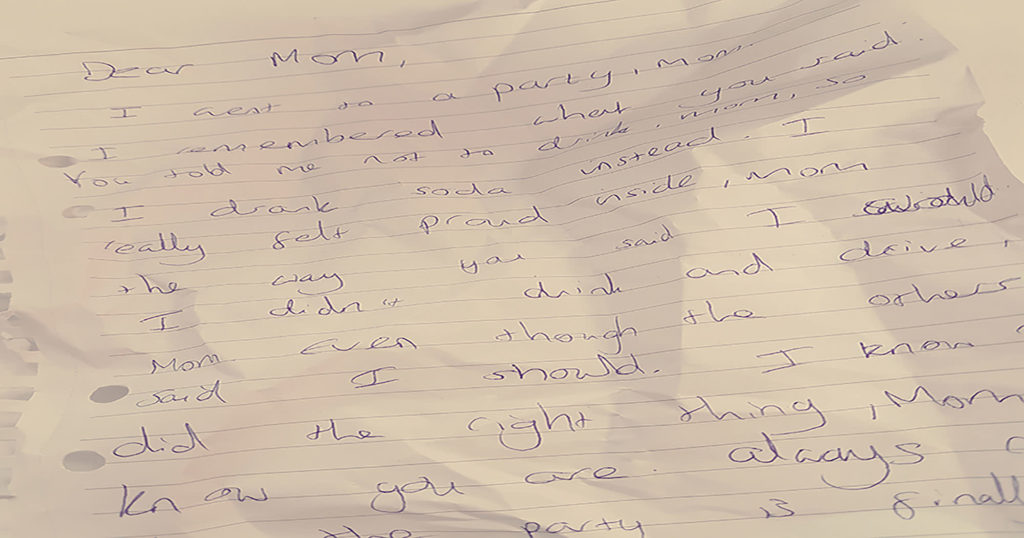 Dear Mom,
I went to a party, Mom.
I remembered what you said.
You told me not to drink, mom, so
I drank soda instead. I
really felt proud inside, mom
the way you said I would
I didn't drink and drive,
Mom even though the others
said I should. I know
did the right thing, Mom
know you are always
the party is finall